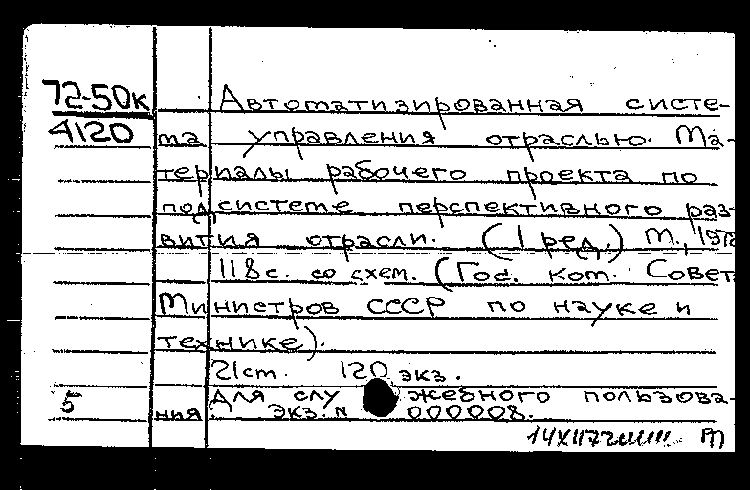 72-50к
4120
Автоматизированная систе-
ма управления отраслью. Ма-
териалы рабочего проекта по
подсистеме перспективного раз-
вития отрасли. (1 ред.) М., 197
118с. со схем. (Гос. ком. Совет
Министров СССР по науке и
технике).
21см. 120 экз.
5 Для служебного пользова-
ния. Экз. N 000008.